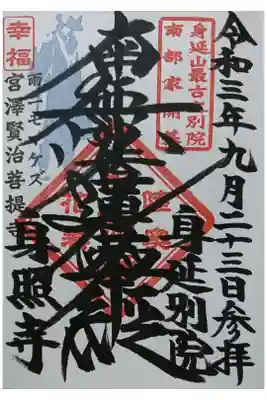 令和三年九月二十三日参拝
身延山最古の別院
南部家開基
身延別院
南無妙法蓮華経
陸奥
花巻
幸福
雨ニモマケズ
宮澤賢治菩提寺
身照寺